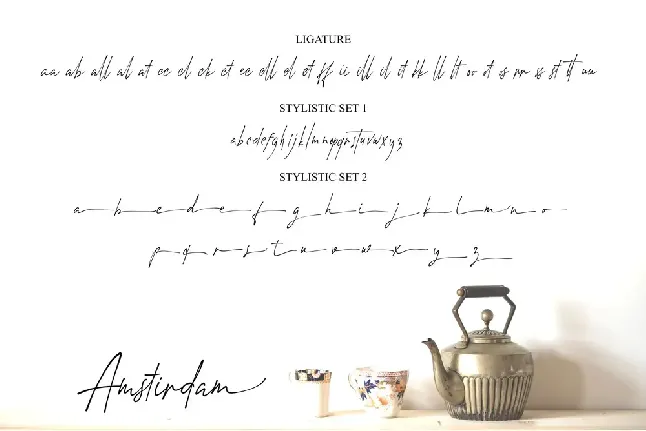 LIGATURE
aa ab all al at cc cl ck ct ec ell el et ff ii ill il it kk ll lt oo ot rs rr ss st tt uu
STYLISTIC SET 1
abcdefghijklmnopqrstuvwxyz
STYLISTIC SET 2
a b c d e f g h i j k l m n o
p q r s t u v w x y z
Amstirdam